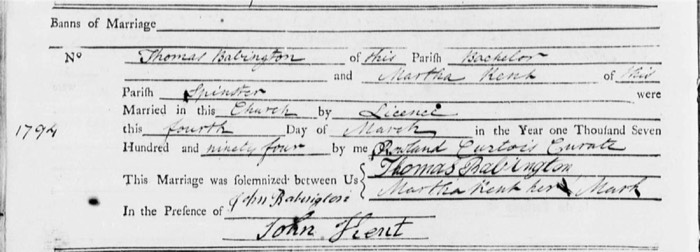 Banns of Marriage
No Thomas Babington of this Parish Bachelor
and Martha Kent of this
Parish Spinster were
Married in this Church by Licence
1794 this fourth Day of March in the Year one Thousand Seven
Hundred and ninety four by me Rowland Curtois Curate
This Marriage was solemnized between Us Thomas Babington
Martha Kent her X Mark
In the Presence of John Babington
John Kent